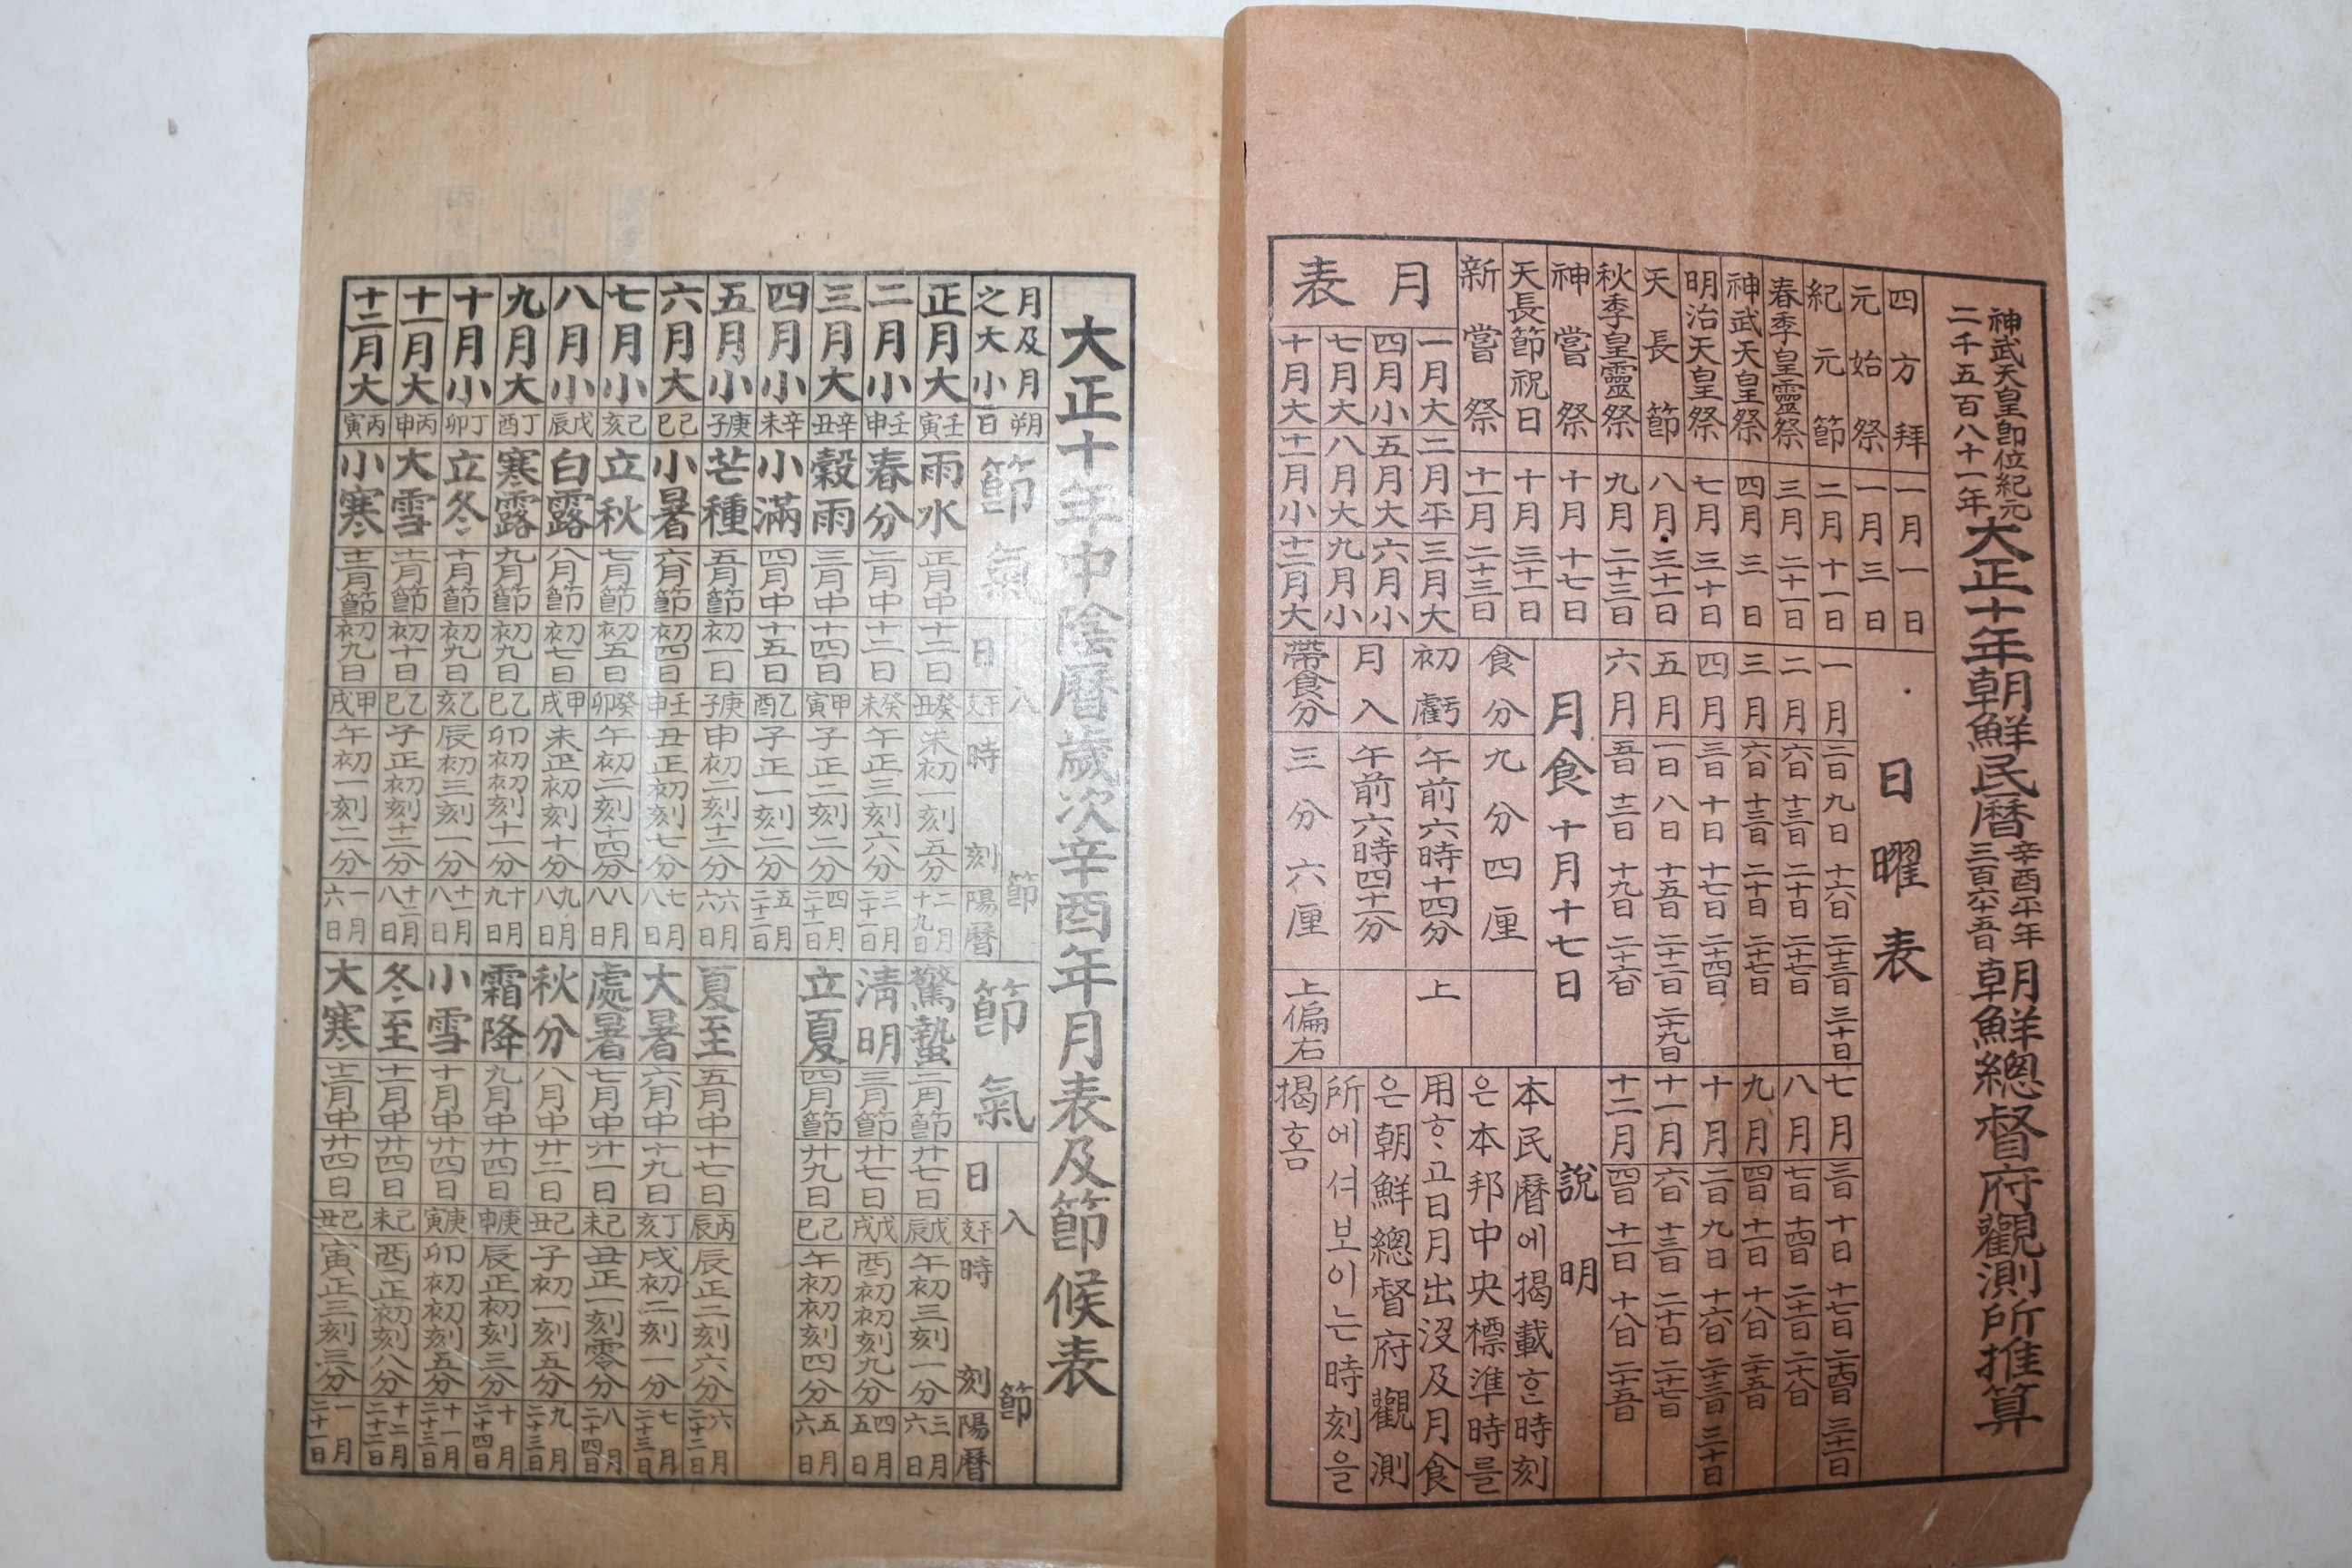 神武天皇卽位紀元
二千五百八十一年
大正十年朝鮮民曆
辛酉平年
三百六十五日
朝鮮總督府觀測所推算
四方拜 一月一日
元始祭 一月三日
紀元節 二月十一日
春季皇靈祭 三月二十一日
神武天皇祭 四月三日
明治天皇祭 七月三十日
天長節 八月三十一日
秋季皇靈祭 九月二十三日
神嘗祭 十月十七日
天長節祝日 十月三十一日
新嘗祭 十一月二十三日
月表
一月大 二月平 三月大
四月小 五月大 六月小
七月大 八月大 九月小
十月大 十一月小 十二月大
日曜表
一月 二日 九日 十六日 二十三日 三十日
二月 六日 十三日 二十日 二十七日
三月 六日 十三日 二十日 二十七日
四月 三日 十日 十七日 二十四日
五月 一日 八日 十五日 二十二日 二十九日
六月 五日 十二日 十九日 二十六日
七月 三日 十日 十七日 二十四日 三十一日
八月 七日 十四日 二十一日 二十八日
九月 四日 十一日 十八日 二十五日
十月 二日 九日 十六日 二十三日 三十日
十一月 六日 十三日 二十日 二十七日
十二月 四日 十一日 十八日 二十五日
月食 十月十七日
食分 九分四厘
初虧 午前六時十四分 上
月入 午前六時四十二分
帶食分 三分六厘 上偏右
說明
本民曆에揭載ᄒᆞᆫ時刻
은本邦中央標準時를
用ᄒᆞ고日月出沒及月食
은朝鮮總督府觀測
所에셔보이는時刻을
揭홈
大正十年中陰曆歲次辛酉年月表及節候表
月及月之大小 朔日 節氣 入節 日 干支 時刻 陽曆 節氣 入節 日 干支 時刻 陽曆
正月大 壬寅 雨水 正月中 十二日 癸丑 未初一刻五分 二月十九日 驚蟄 二月節 廿七日 戊辰 午初三刻一分 三月六日
二月小 壬申 春分 二月中 十二日 癸未 午正三刻六分 三月二十一日 淸明 三月節 廿七日 戊戌 酉初初刻九分 四月五日
三月大 辛丑 穀雨 三月中 十四日 甲寅 子正二刻二分 四月二十一日 立夏 四月節 廿九日 己巳 午初初刻四分 五月六日
四月小 辛未 小滿 四月中 十五日 乙酉 子正一刻二分 五月二十二日
五月小 庚子 芒種 五月節 初一日 庚子 申初二刻十二分 六月六日 夏至 五月中 十七日 丙辰 辰正二刻六分 六月二十二日
六月大 己巳 小暑 六月節 初四日 壬申 丑正初刻七分 七月八日 大暑 六月中 十九日 丁亥 戌初二刻一分 七月二十三日
七月小 己亥 立秋 七月節 初五日 癸卯 午初二刻十四分 八月八日 處暑 七月中 廿一日 己未 丑正一刻零分 八月二十四日
八月小 戊辰 白露 八月節 初七日 甲戌 未正初刻十分 九月八日 秋分 八月中 廿二日 己丑 子初一刻五分 九月二十三日
九月大 丁酉 寒露 九月節 初九日 乙巳 卯初初刻十一分 十月九日 霜降 九月中 廿四日 庚申 辰正初刻三分 十月二十四日
十月小 丁卯 立冬 十月節 初九日 乙亥 辰初三刻一分 十一月八日 小雪 十月中 廿四日 庚寅 卯初初刻五分 十一月二十三日
十一月大 丙申 大雪 十一月節 初十日 乙巳 子正初刻十二分 十二月八日 冬至 十一月中 廿四日 己未 酉正初刻八分 十二月二十二日
十二月大 丙寅 小寒 十二月節 初九日 甲戌 午初一刻二分 一月六日 大寒 十二月中 廿四日 己丑 寅正三刻三分 一月二十一日